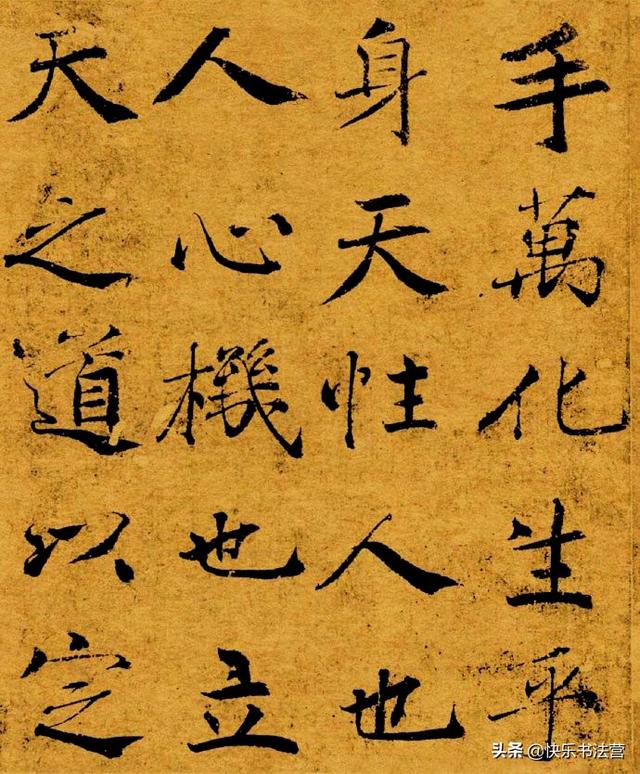 手萬化生乎
身天性人也
人心機也立
天之道以定
头条 @快乐书法营